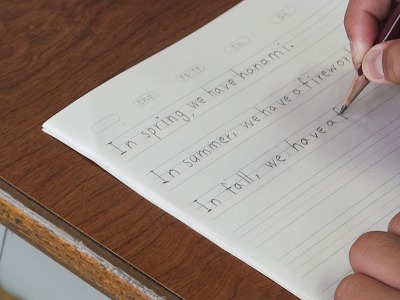 In spring, we have hanami.
In summer, we have a firewor
In fall, we have a f